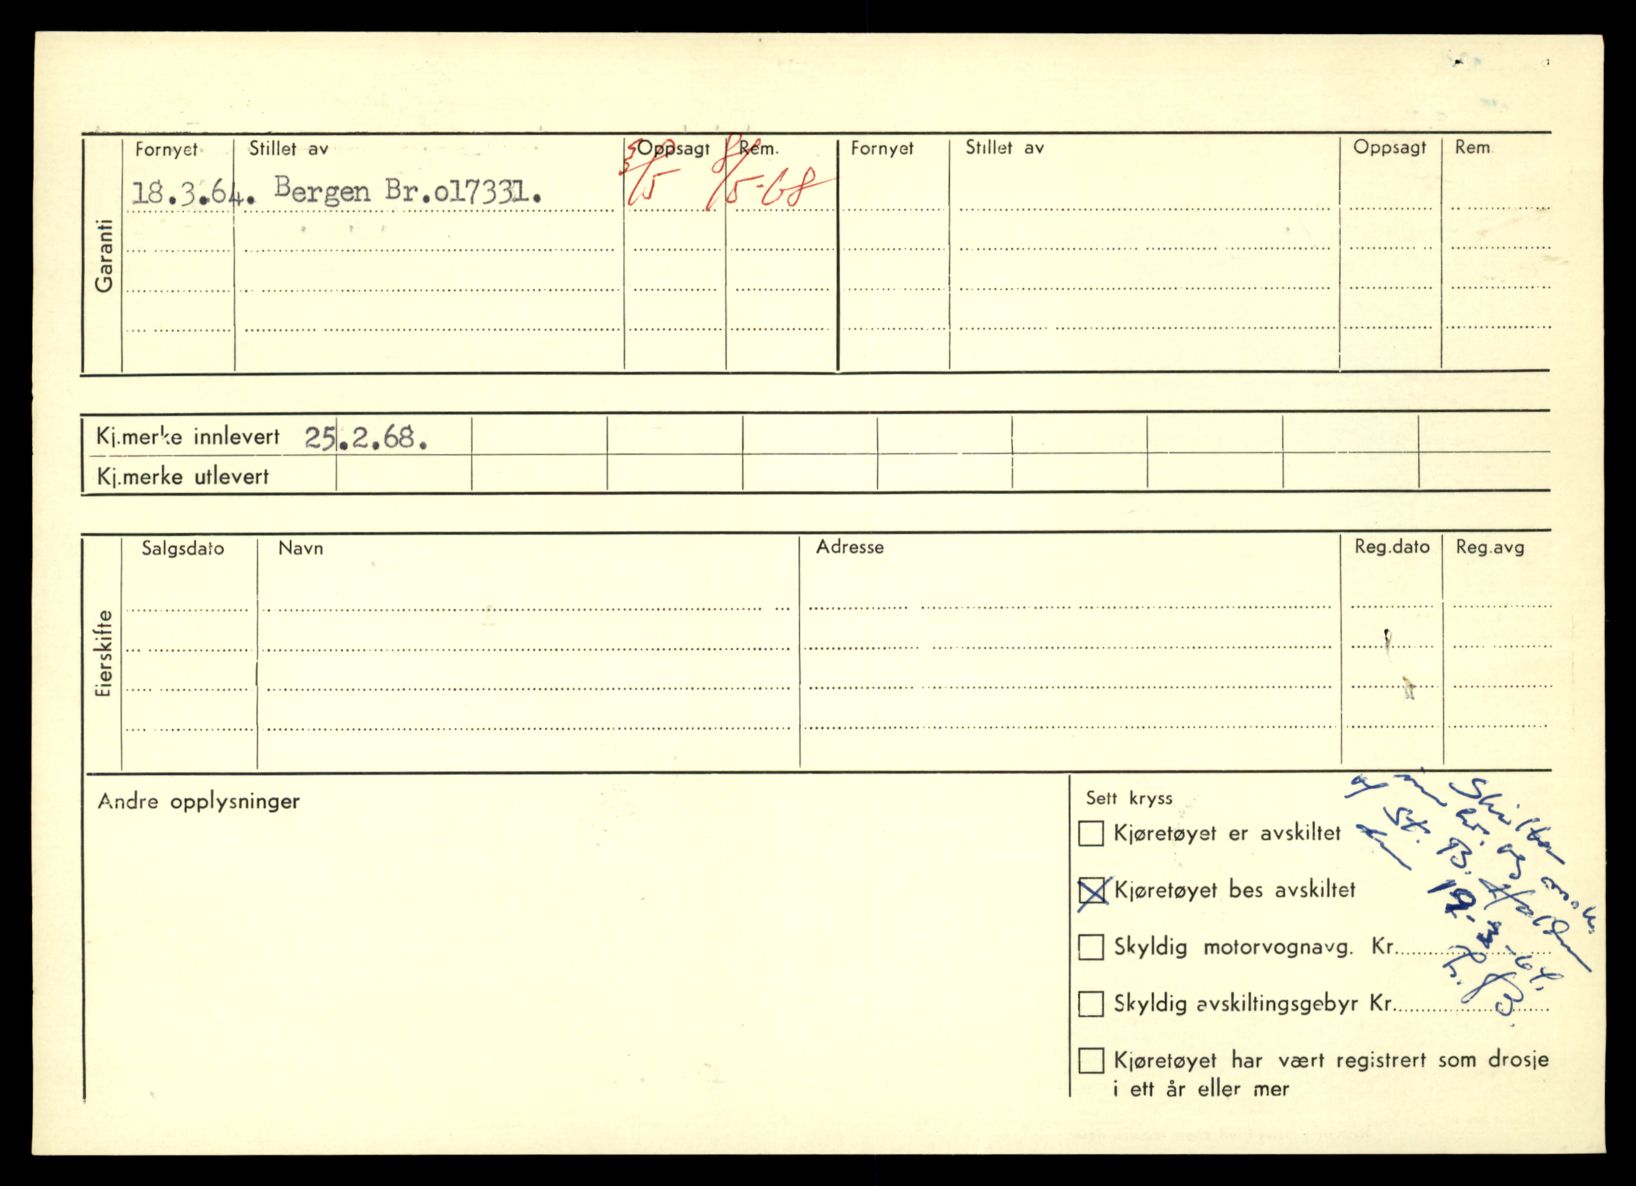 Garanti
Fornyet Stillet av Oppsagt Rem. Fornyet Stillet av Oppsagt Rem
18.3.64. Bergen Br.o17331. /5 8/5-68
Kj.merke innlevert 25.2.68.
Kj.merke utlevert
Eierskifte
Salgsdato Navn Adresse Reg.dato Reg.avg
Andre opplysninger
Sett kryss
Kjøretøyet er avskiltet
Kjøretøyet bes avskiltet
Skyldig motorvognavg. Kr.
Skyldig avskiltingsgebyr Kr.
Kjøretøyet har vært registrert som drosje
i ett år eller mer
Skilter
av St. B. Halden